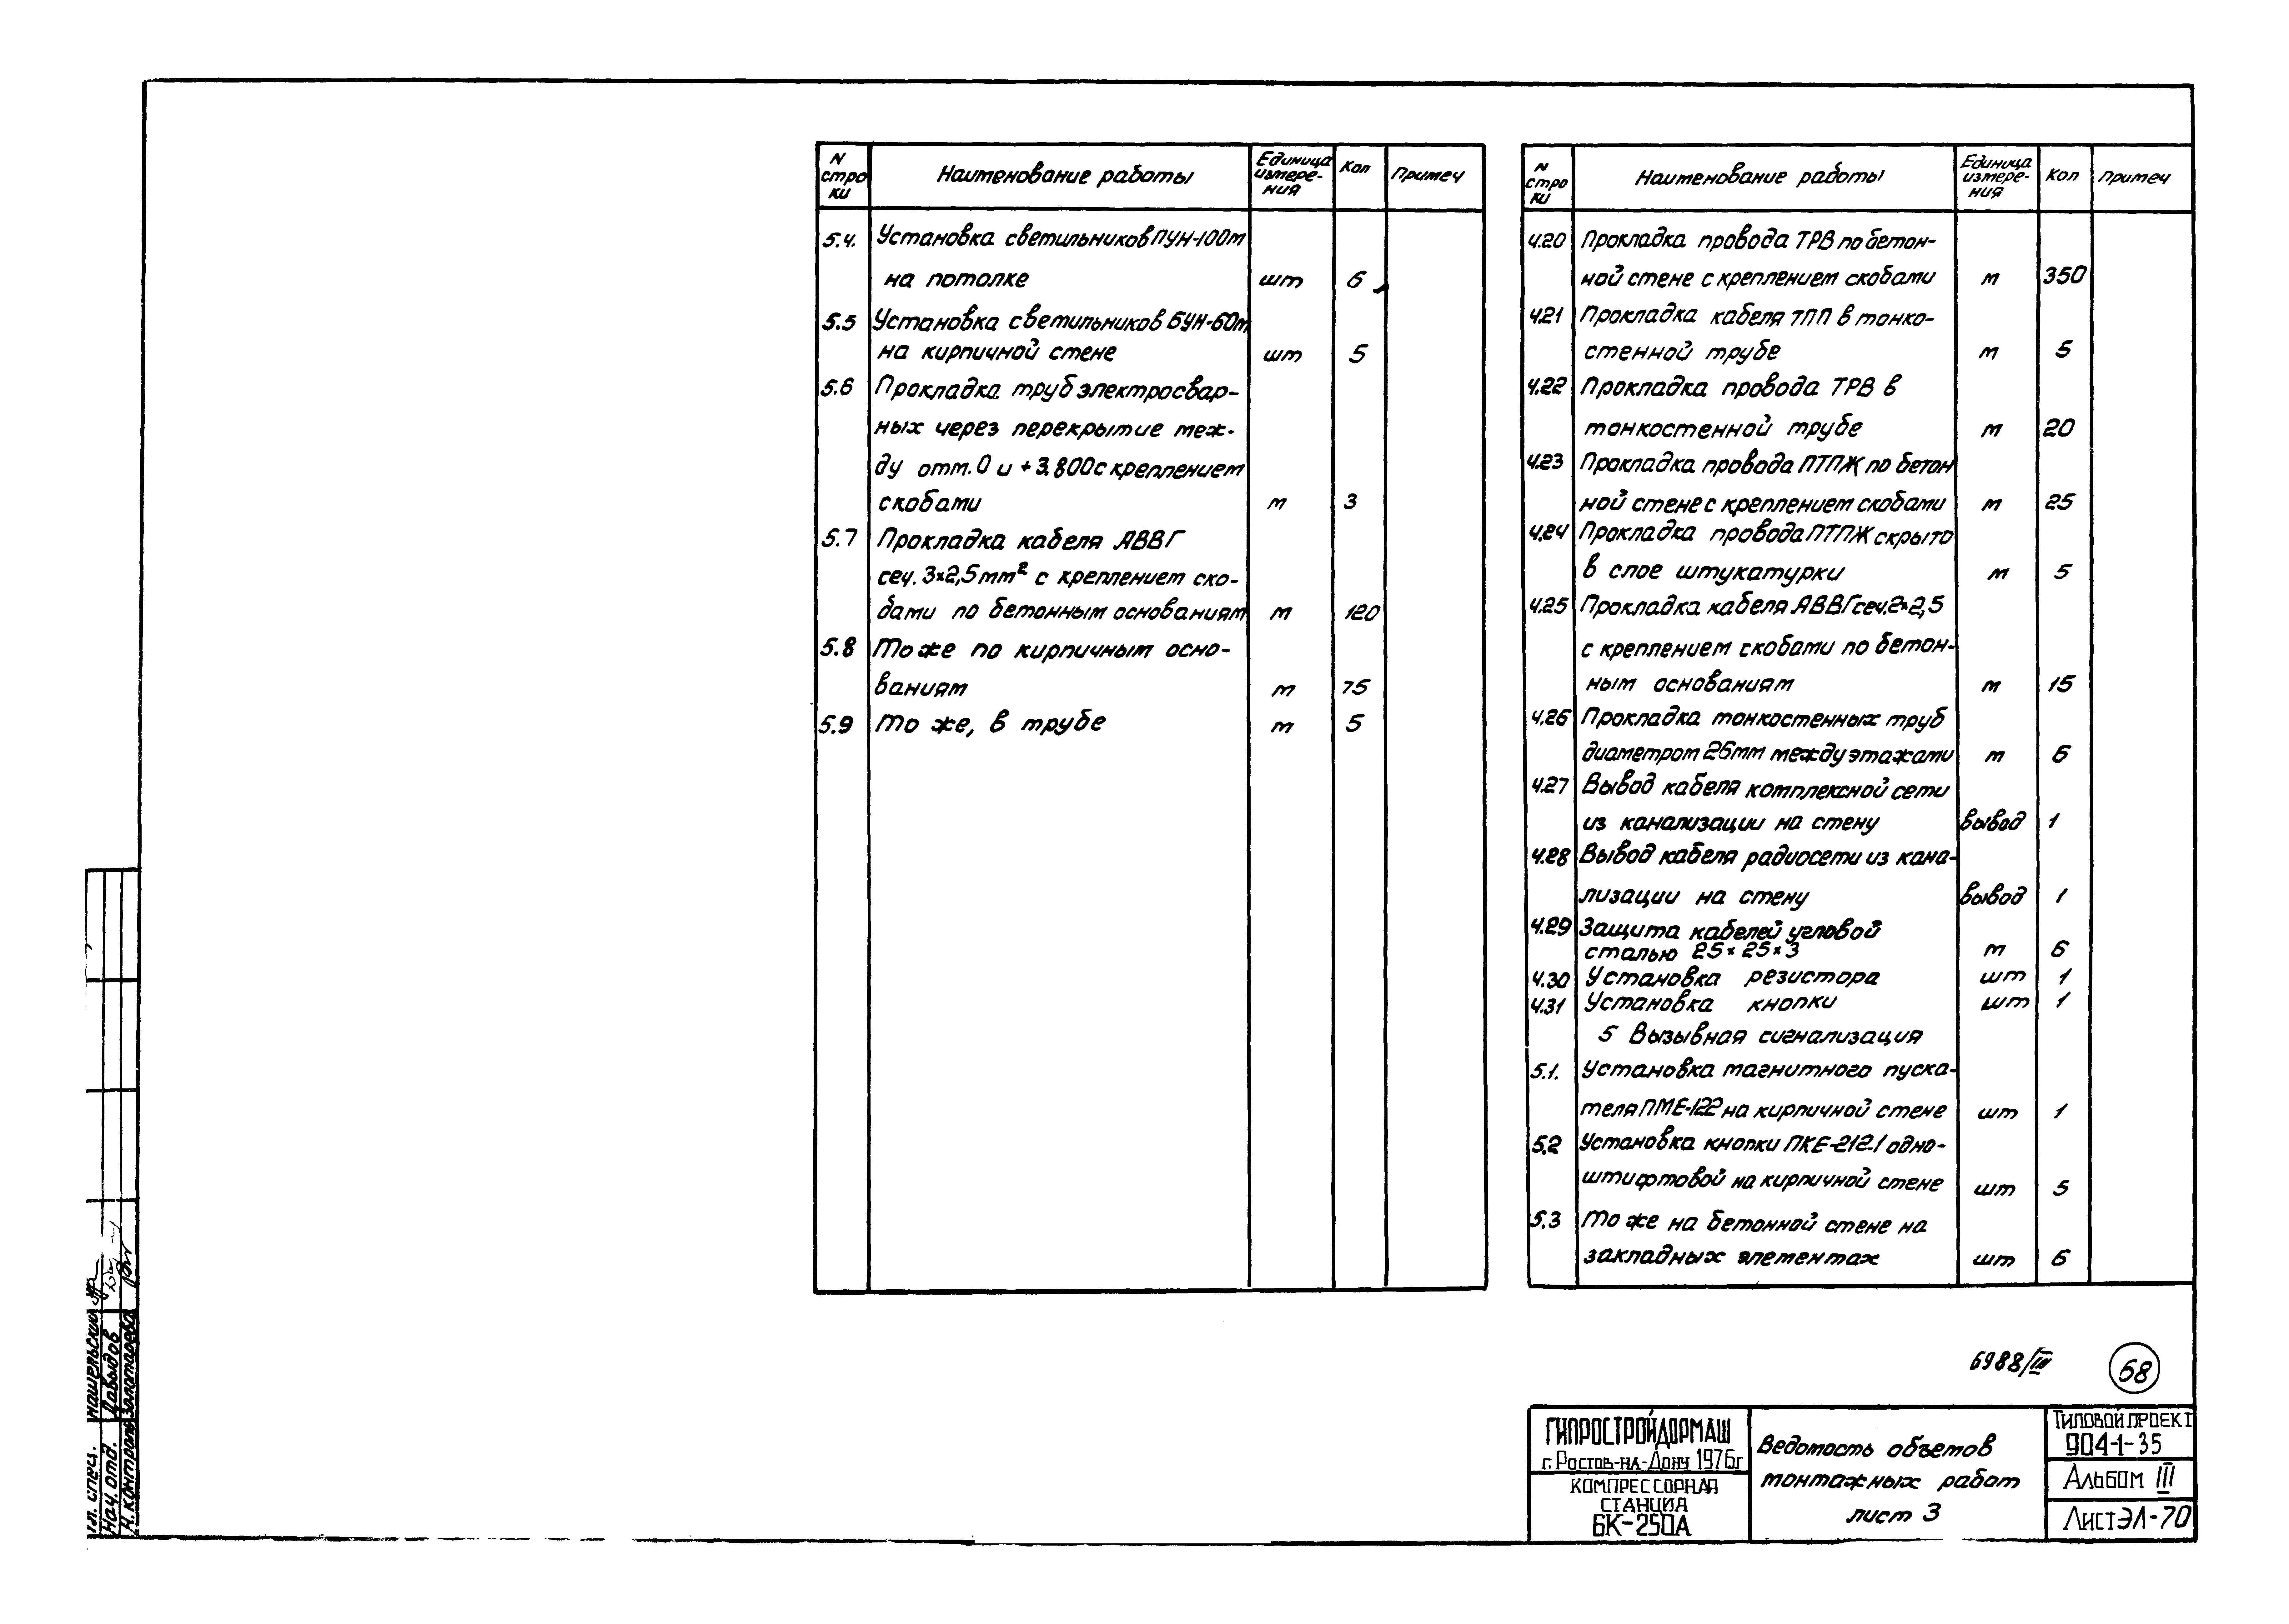 N
стро
ки
Наименование работы
Единица
измере-
ния
Кол
Примеч
5.4. Установка светильников ПУН-100м
на потолке шт 6
5.5 Установка светильников БУН-60м
на кирпичной стене шт 5
5.6 Прокладка труб электросвар-
ных через перекрытие меж-
ду отм. 0 и +3.800 с креплением
скобами м 3
5.7 Прокладка кабеля АВВГ
сеч. 3×2,5мм² с креплением ско-
бами по бетонным основаниям м 120
5.8 То же по кирпичным осно-
ваниям м 75
5.9 То же, в трубе м 5
N
стро
ки
Наименование работы
Единица
измере-
ния
Кол
Примеч
4.20 Прокладка провода ТРВ по бетон-
ной стене с креплением скобами м 350
4.21 Прокладка кабеля ТПП в тонко-
стенной трубе м 5
4.22 Прокладка провода ТРВ в
тонкостенной трубе м 20
4.23 Прокладка провода ПТПЖ по бетон
ной стене с креплением скобами м 25
4.24 Прокладка провода ПТПЖ скрыто
в слое штукатурки м 5
4.25 Прокладка кабеля АВВГ сеч. 2×2,5
с креплением скобами по бетон-
ным основаниям м 15
4.26 Прокладка тонкостенных труб
диаметром 26мм между этажами м 6
4.27 Вывод кабеля комплексной сети
из канализации на стену вывод 1
4.28 Вывод кабеля радиосети из кана-
лизации на стену вывод 1
4.29 Защита кабелей угловой
сталью 25×25×3 м 6
4.30 Установка резистора шт 1
4.31 Установка кнопки шт 1
5 Вызывная сигнализация
5.1. Установка магнитного пуска-
теля ПМЕ-122 на кирпичной стене шт 1
5.2 Установка кнопки ПКЕ-212-1 одно-
штифтовой на кирпичной стене шт 5
5.3 То же на бетонной стене на
закладных элементах шт 6
6988/III
68
ГИПРОСТРОЙДОРМАШ
г. Ростов-на-Дону 1976г
КОМПРЕССОРНАЯ
СТАНЦИЯ
6К-250А
Ведомость объемов
монтажных работ
лист 3
ТИПОВОЙ ПРОЕКТ
904-1-35
АЛЬБОМ III
ЛИСТ ЭЛ-70
Гл. спец.
Нач. отд. Давыдов
Н. контроль Золотарева